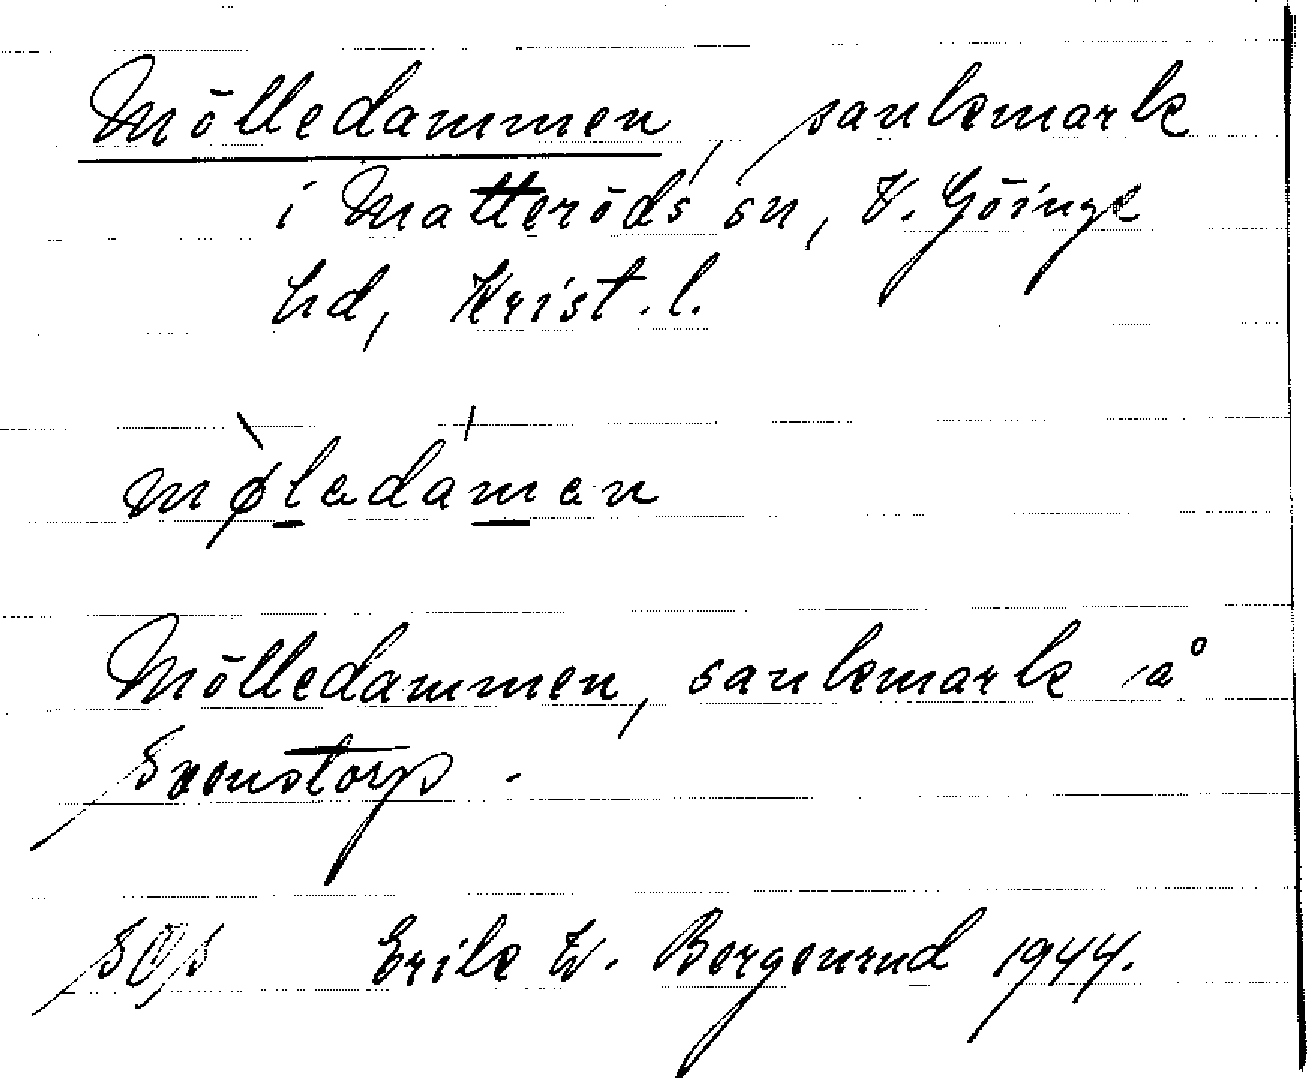 Mölledammen, sankmark
i Matteröds sn, V. Göinge
hd, Krist. l.
mø̀ledámen
Mölledammen, sankmark å
Svenstorp.
Erik W. Bergenrud 1944.